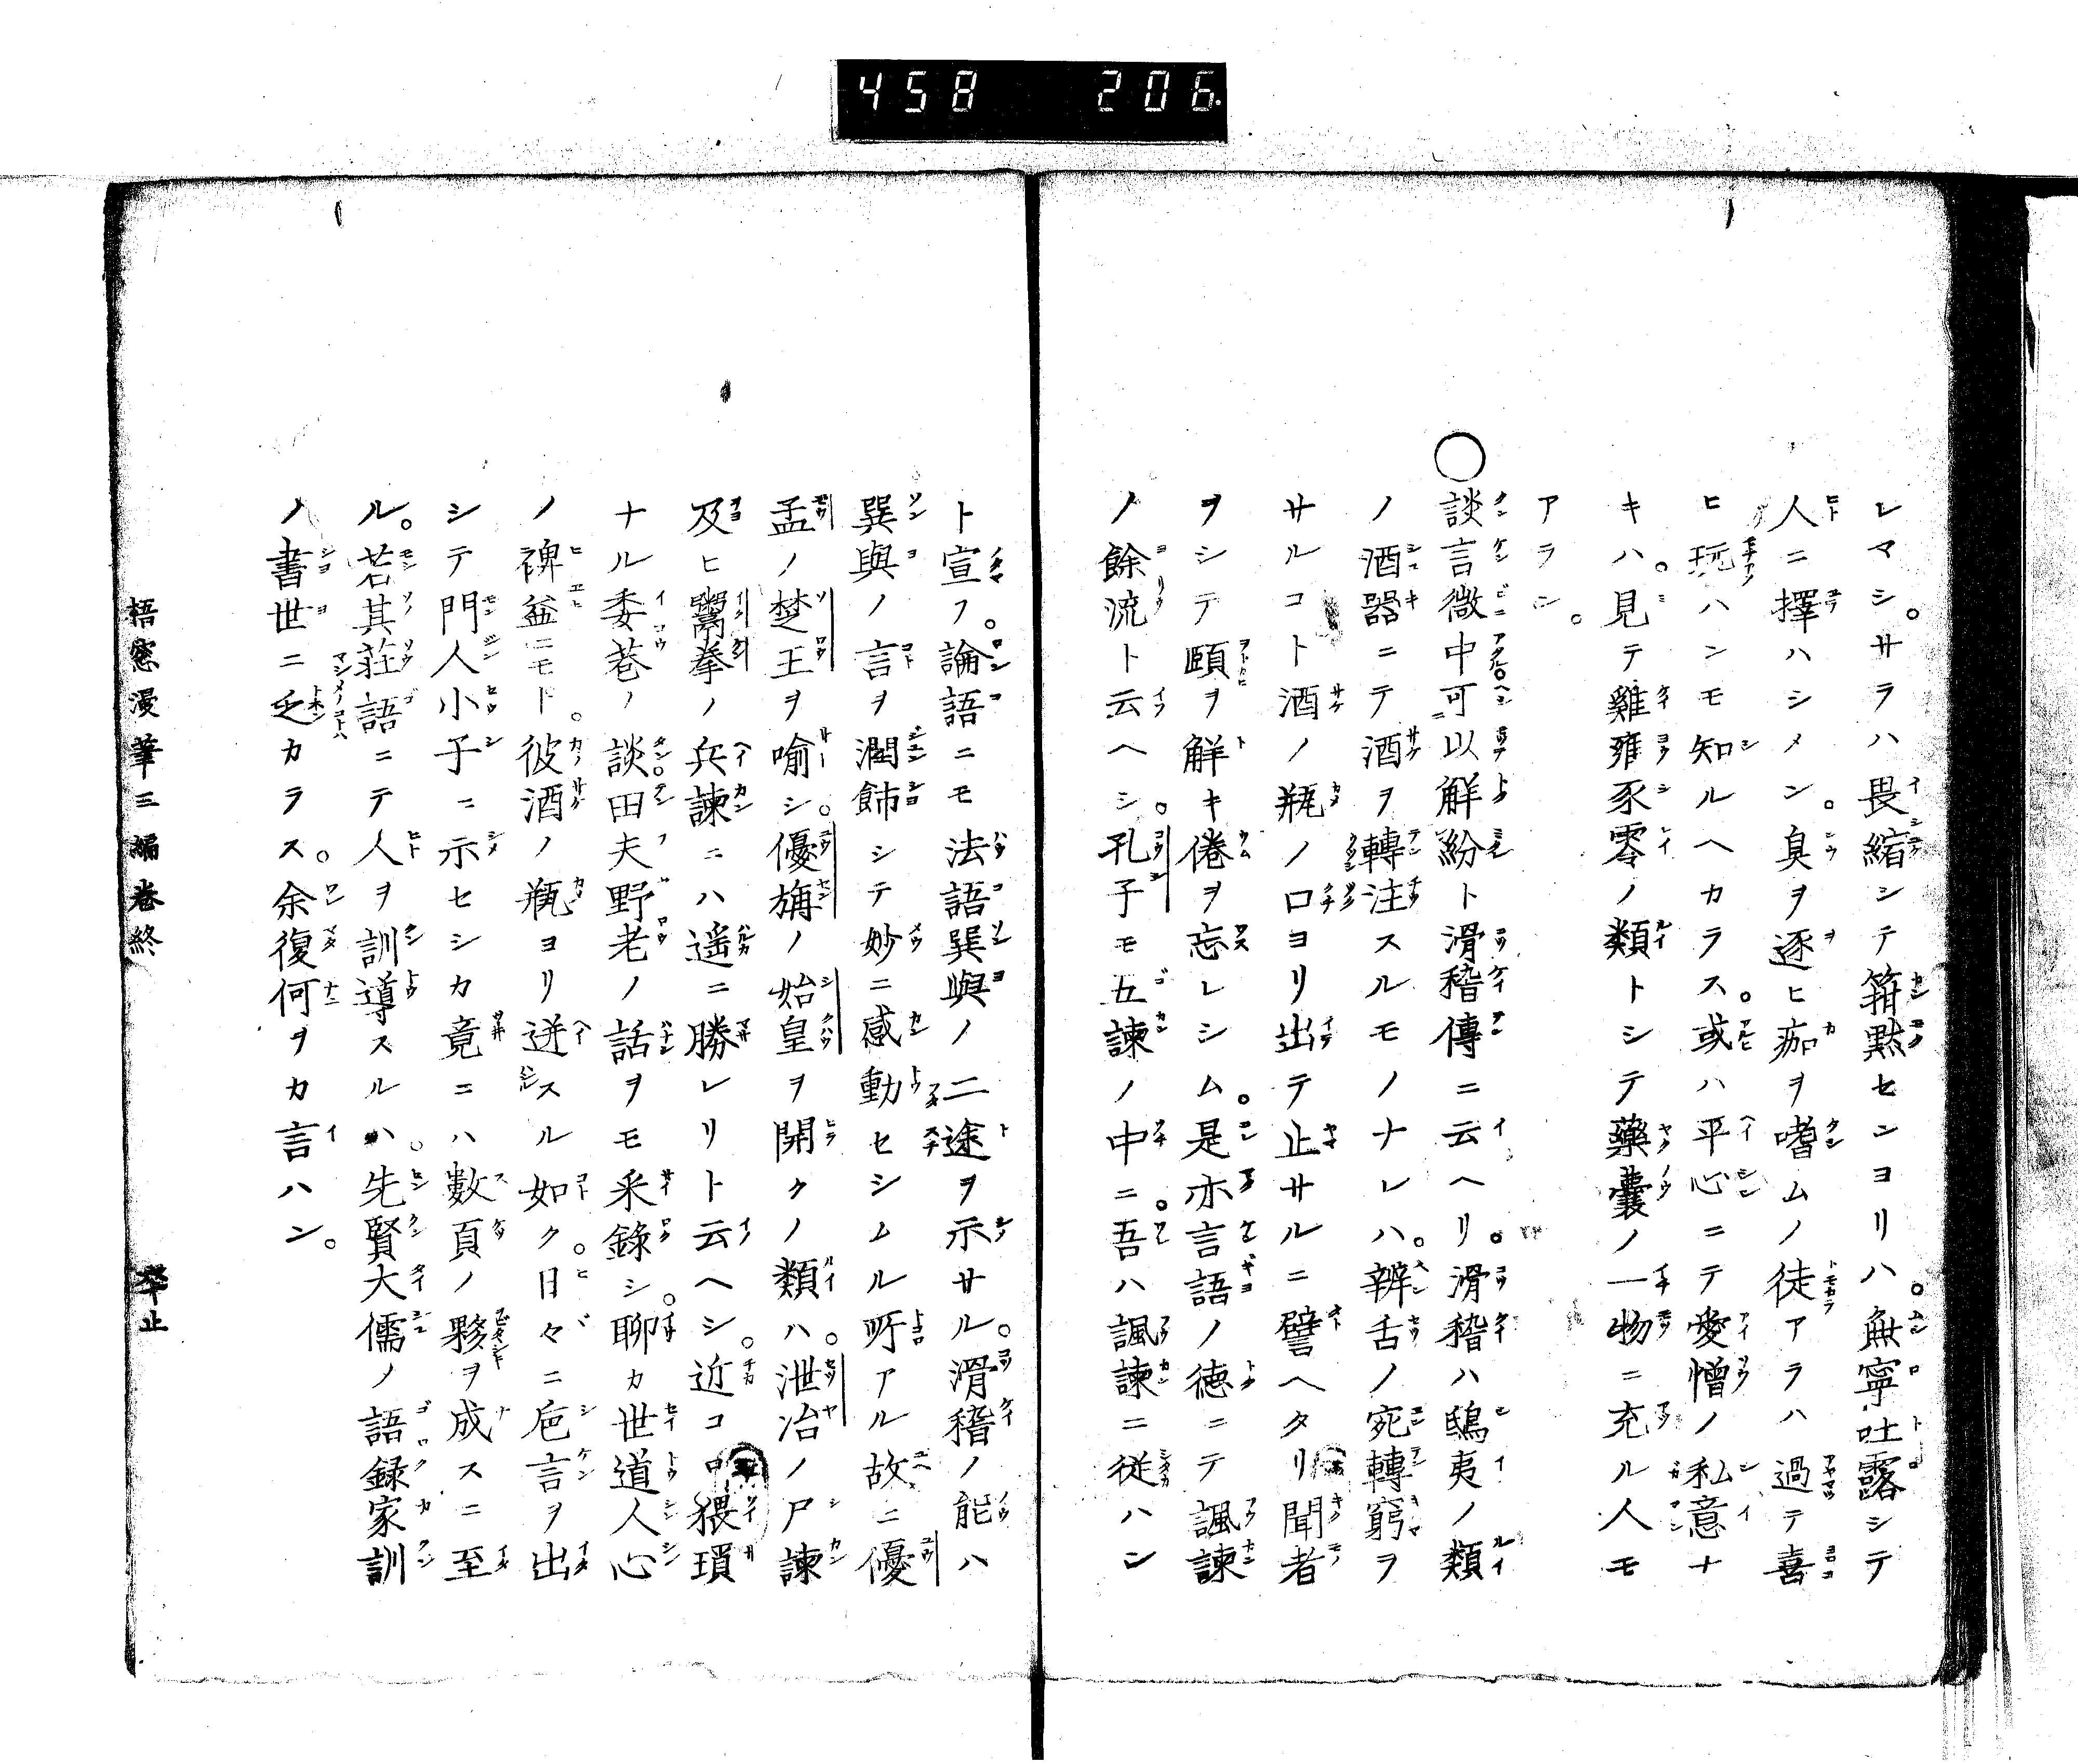 458 206
レマシ。サラハ畏縮シテ箝黙センヨリハ。無寧吐露シテ
人ニ擇ハシメン。臭ヲ逐ヒ痂ヲ嗜ムノ徒アラハ過テ喜
ヒ玩ハンモ知ルヘカラス。或ハ平心ニテ愛憎ノ私意ナ
キハ。見テ雞雍豕零ノ類トシテ藥囊ノ一物ニ充ル人モ
アラン。
○談言微中可以解紛ト滑稽傳ニ云ヘリ。滑稽ハ鴟夷ノ類
ノ酒器ニテ酒ヲ轉注スルモノナレハ。辨舌ノ宛轉窮ラ
サルコト酒ノ瓶ノ口ヨリ出テ止サルニ譬ヘタリ聞者
ヲシテ頤ヲ解キ倦ヲ忘レシム。是亦言語ノ徳ニテ諷諫
ノ餘流ト云ヘシ。孔子モ五諫ノ中ニ。吾ハ諷諫ニ従ハン
ト宣フ。論語ニモ法語巽與ノ二途ヲ示サル。滑稽ノ能ハ
巽與ノ言ヲ潤飾シテ妙ニ感動セシムル所アル故ニ優
孟ノ楚王ヲ喩シ。優旃ノ始皇ヲ開クノ類ハ。泄冶ノ尸諫
及ヒ鬻拳ノ兵諫ニハ遥ニ勝レリト云ヘシ。近コロ猥瑣
ナル委巷ノ談田夫野老ノ話ヲモ采錄シ。聊カ世道人心
ノ裨益ニモト。彼酒ノ瓶ヨリ迸スル如ク。日々ニ巵言ヲ出
シテ門人小子ニ示セシカ竟ニハ數頁ノ夥ヲ成スニ至
ル。若其荘語ニテ人ヲ訓導スルハ。先賢大儒ノ語録家訓
ノ書世ニ乏カラス。余復何ヲカ言ハン。
梧窓漫筆三編巻終